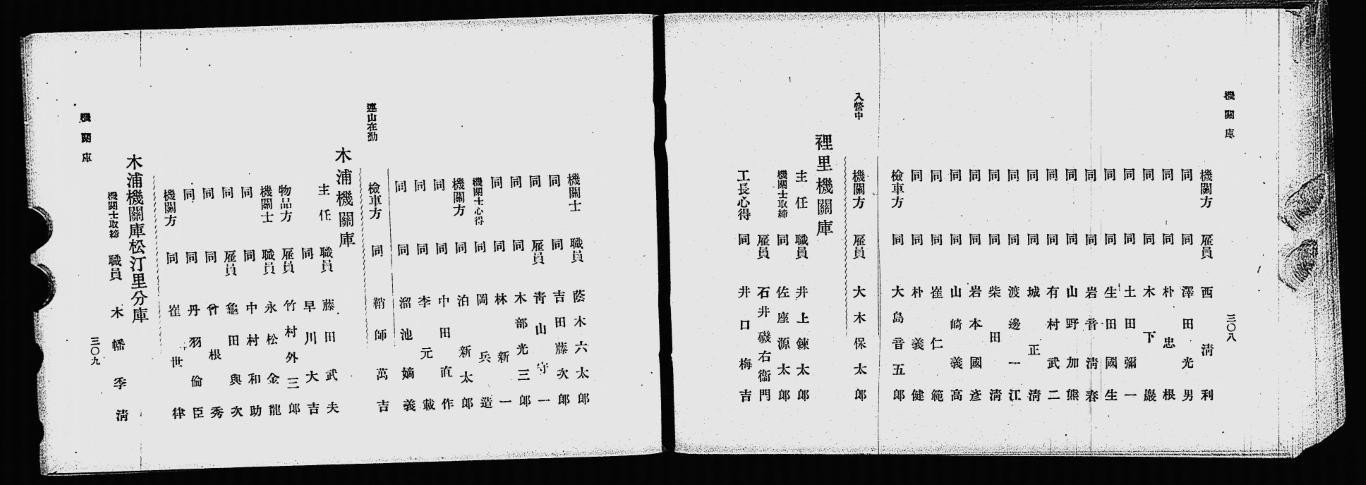 機關庫
三〇八
機關方 雇員 西清利
同 同 澤田光男
同 同 朴忠根
同 同 木下巖
同 同 土田彌一
同 同 生田國生
同 同 岩音清春
同 同 山野加熊
同 同 有村武二
同 同 城正清
同 同 渡邊一江
同 同 柴田清
同 同 岩本國彥
同 同 山崎義高
同 同 崔仁範
同 同 朴義健
檢車方 同 大島音五郎
入營中 機關方 雇員 大木保太郎
裡里機關庫
主任 職員 井上鍊太郎
機關士取締 同 佐座源太郎
雇員 石井磯右衞門
工長心得 同 井口梅吉
機關士 職員 蔭木六太郎
同 同 吉田藤次郎
同 雇員 青山守一
同 同 木部光三郎
同 同 林新一
機關士心得 同 岡兵造
機關方 同 泊新太郎
同 同 中田直作
同 同 李元載
同 同 溜池嫡義
連山在勤 檢車方 同 鞘師萬吉
木浦機關庫
主任 職員 藤田武夫
同 早川大吉
物品方 雇員 竹村外三郎
機關士 職員 永松金龍
同 同 中村和助
同 雇員 龜田與次
同 同 曾根秀
同 同 丹羽倫臣
機關方 同 崔世律
木浦機關庫松汀里分庫
機關士取締 職員 木幡季清
機關庫
三〇九